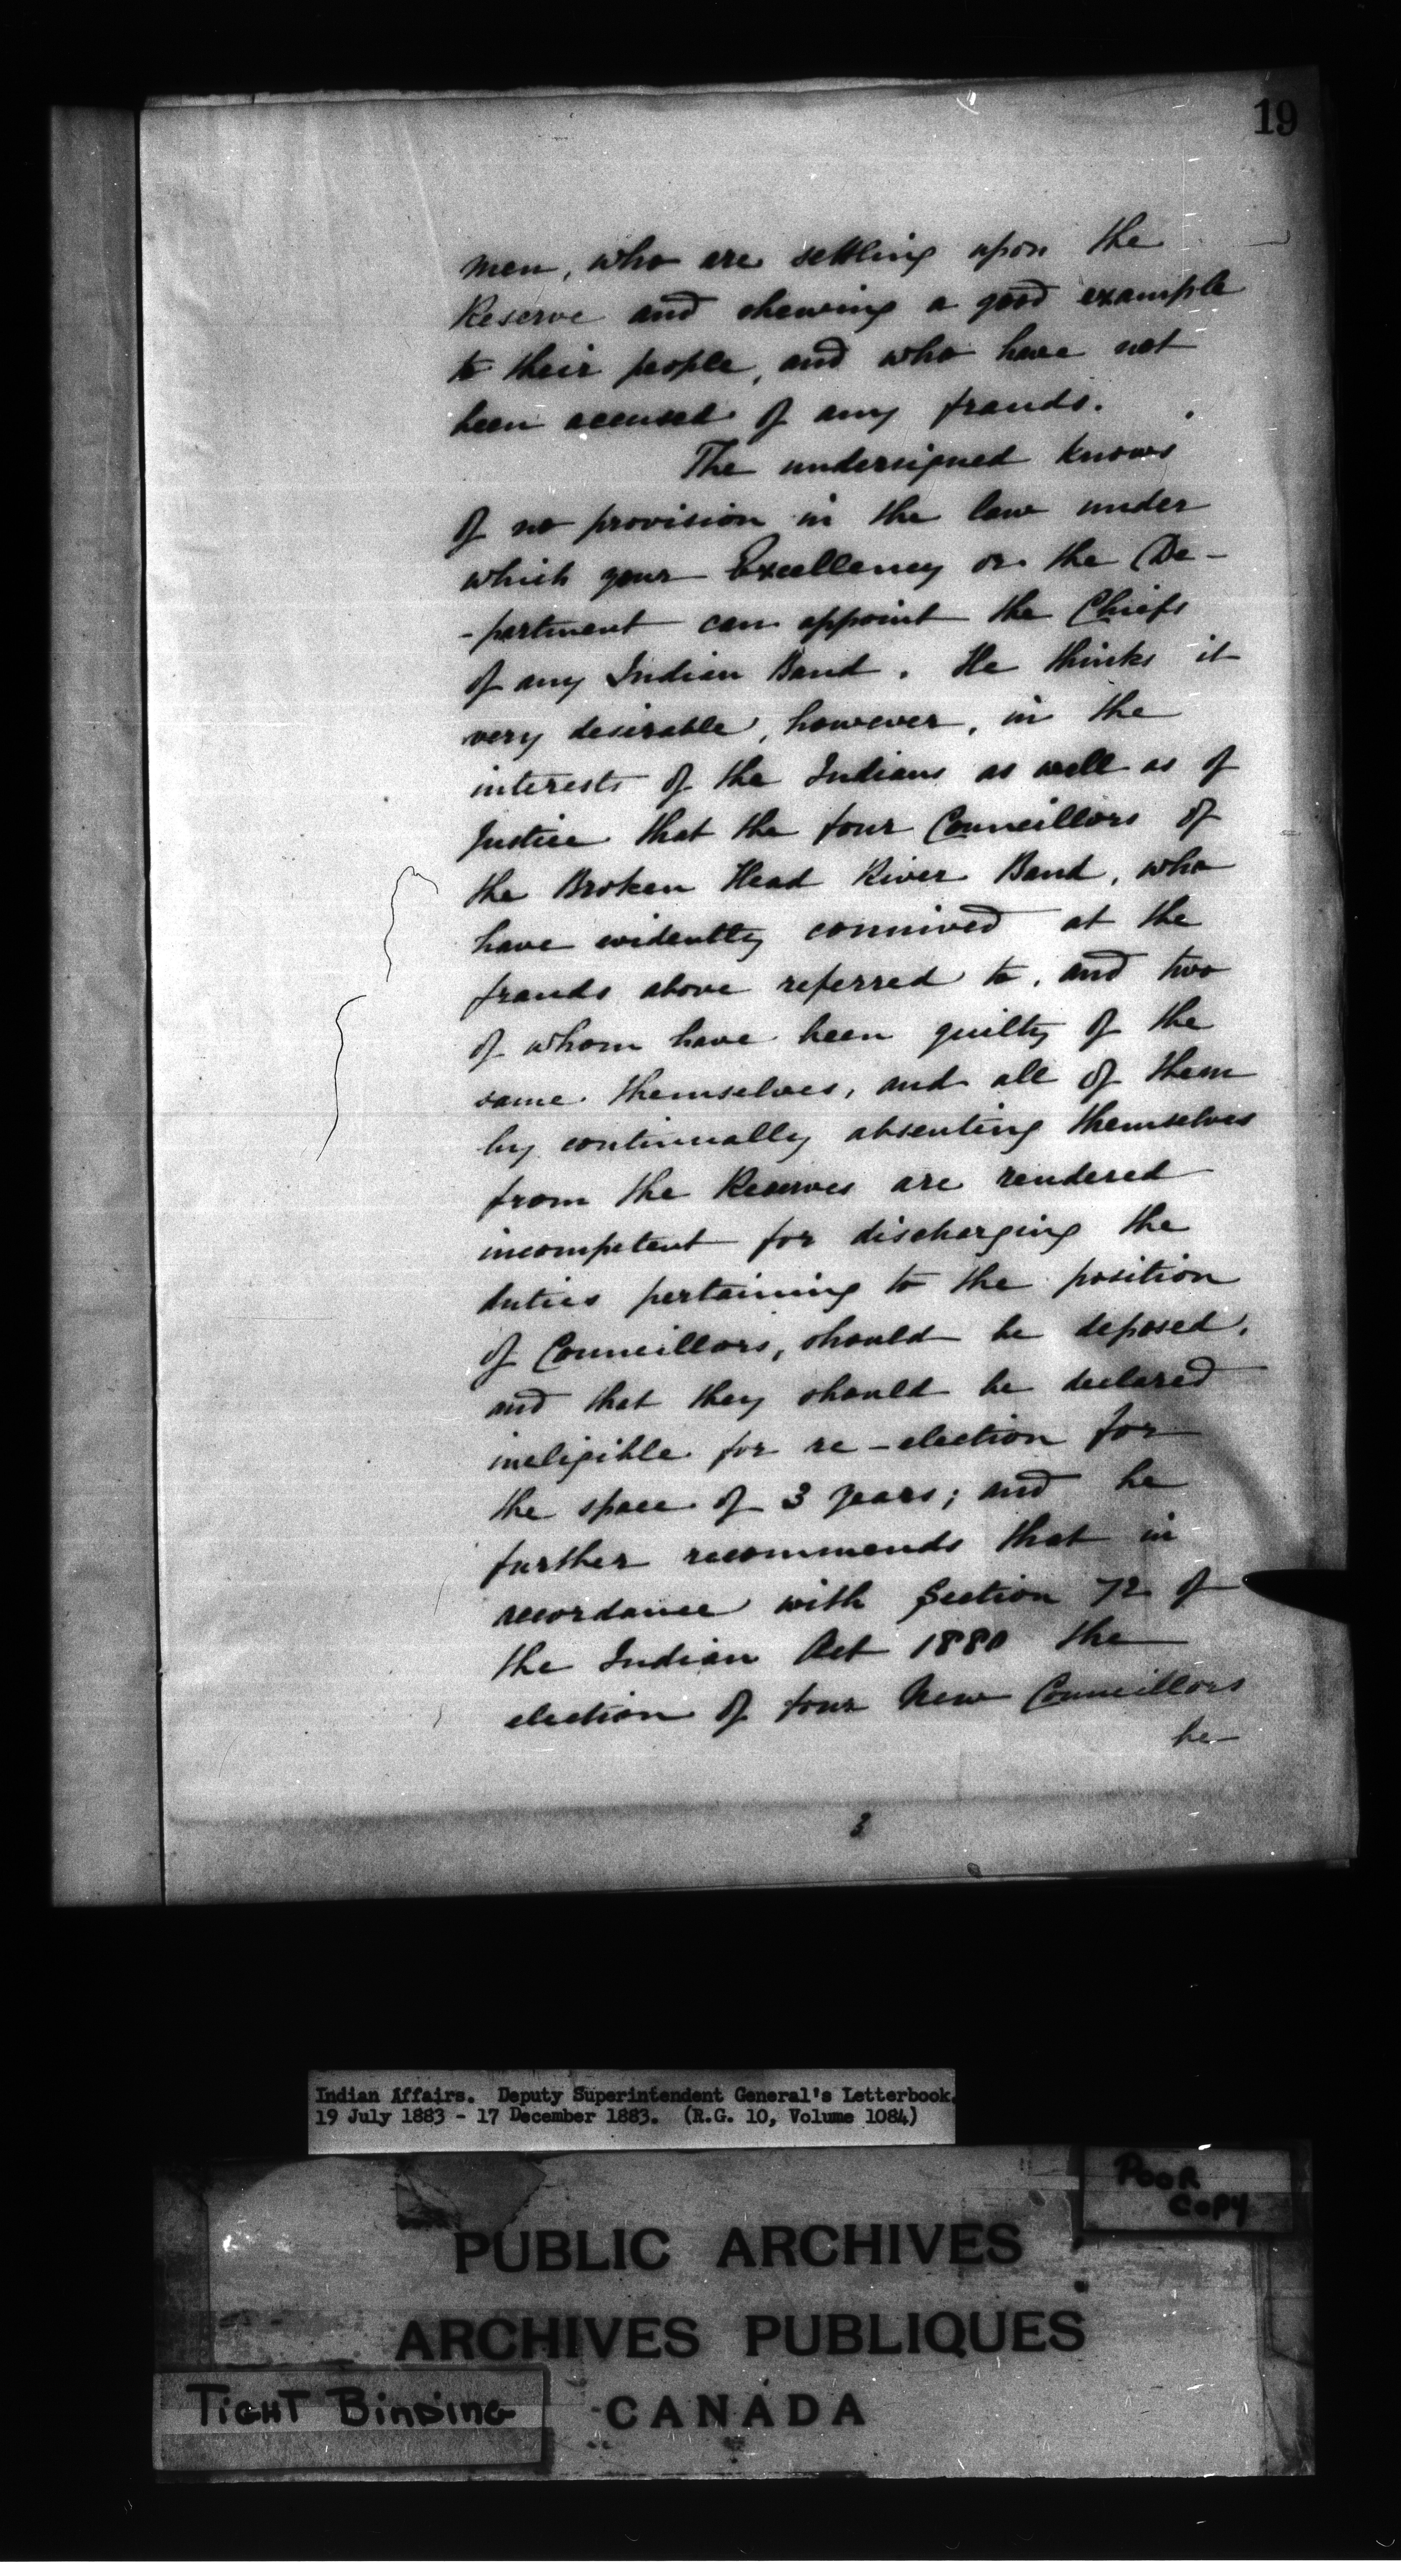 19
men, who are settling upon the
Reserve and shewing a good example
to their people, and who have not
been accused of any frauds.
The undersigned knows
of no provision in the law under
which your Excellency or the De-
-partment can appoint the Chiefs
of any Indian Band. He thinks it
very desirable, however, in the
interests of the Indians as well as of
Justice that the four Councillors of
the Broken Head River Band, who
have evidently connived at the
frauds above referred to, and two
of whom have been guilty of the
same themselves, and all of them
by continually absenting themselves
from the Reserves are rendered
incompetent for discharging the
duties pertaining to the position
of Councillors, should be deposed,
and that they should be declared
ineligible for re-election for
the space of 3 years; and he
further recommends that in
accordance with Section 72 of
the Indian Act 1880 the
election of four New Councillors
be
3
Indian Affairs. Deputy Superintendent General's Letterbook.
19 July 1883 - 17 December 1883. (R.G. 10, Volume 1084)
POOR
COPY
PUBLIC ARCHIVES
ARCHIVES PUBLIQUES
TIGHT BINDING
CANADA